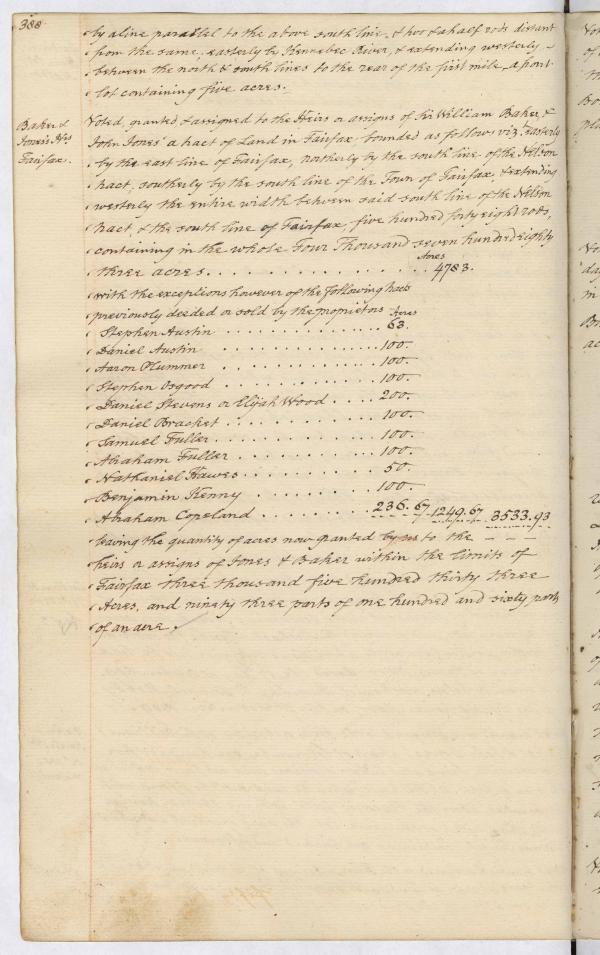 388
by a line parallel to the above south line, & two & a half rods distant
from the same, easterly by Kennebec River, & extending westerly
between the north & south lines to the rear of the first mile, a front
lot containing five acres.
Baker &
Jones's Hrs
Fairfax.
Voted, granted & assigned to the Heirs or assigns of Sir William Baker, &
John Jones' a tract of Land in Fairfax, bounded as follows viz, easterly
by the east line of Fairfax, northerly by the south line of the Nelson
tract, southerly by the south line of the Town of Fairfax, & extending
westerly the entire width between said south line of the Nelson
tract, & the south line of Fairfax, five hundred forty eight rods,
containing in the whole Four Thousand seven hundred eighty
Acres
three acres. . . . . . . . . . . . . . . . . 4783.
with the exceptions however of the following tracts
previously deeded or sold by the proprietors Acres
Stephen Austin . . . . . . . . . . . . . 63.
Daniel Austin . . . . . . . . . . . . 100.
Aaron Plummer . . . . . . . . . . . 100.
Stephen Osgood . . . . . . . . . . . 100.
Daniel Stevens or Elijah Wood . . . . 200.
Daniel Bracket . . . . . . . . . . . 100.
Samuel Fuller . . . . . . . . . . . 100.
Abraham Fuller . . . . . . . . . . 100.
Nathaniel Hawes . . . . . . . . . 50.
Benjamin Kenny . . . . . . . . 100.
Abraham Copeland . . . . . . . 236.67 1249.67 3533.93
leaving the quantity of acres now granted by us to the
heirs or assigns of Jones & Baker within the limits of
Fairfax three thousand five hundred thirty three
Acres, and ninety three parts of one hundred and sixty parts
of an acre.